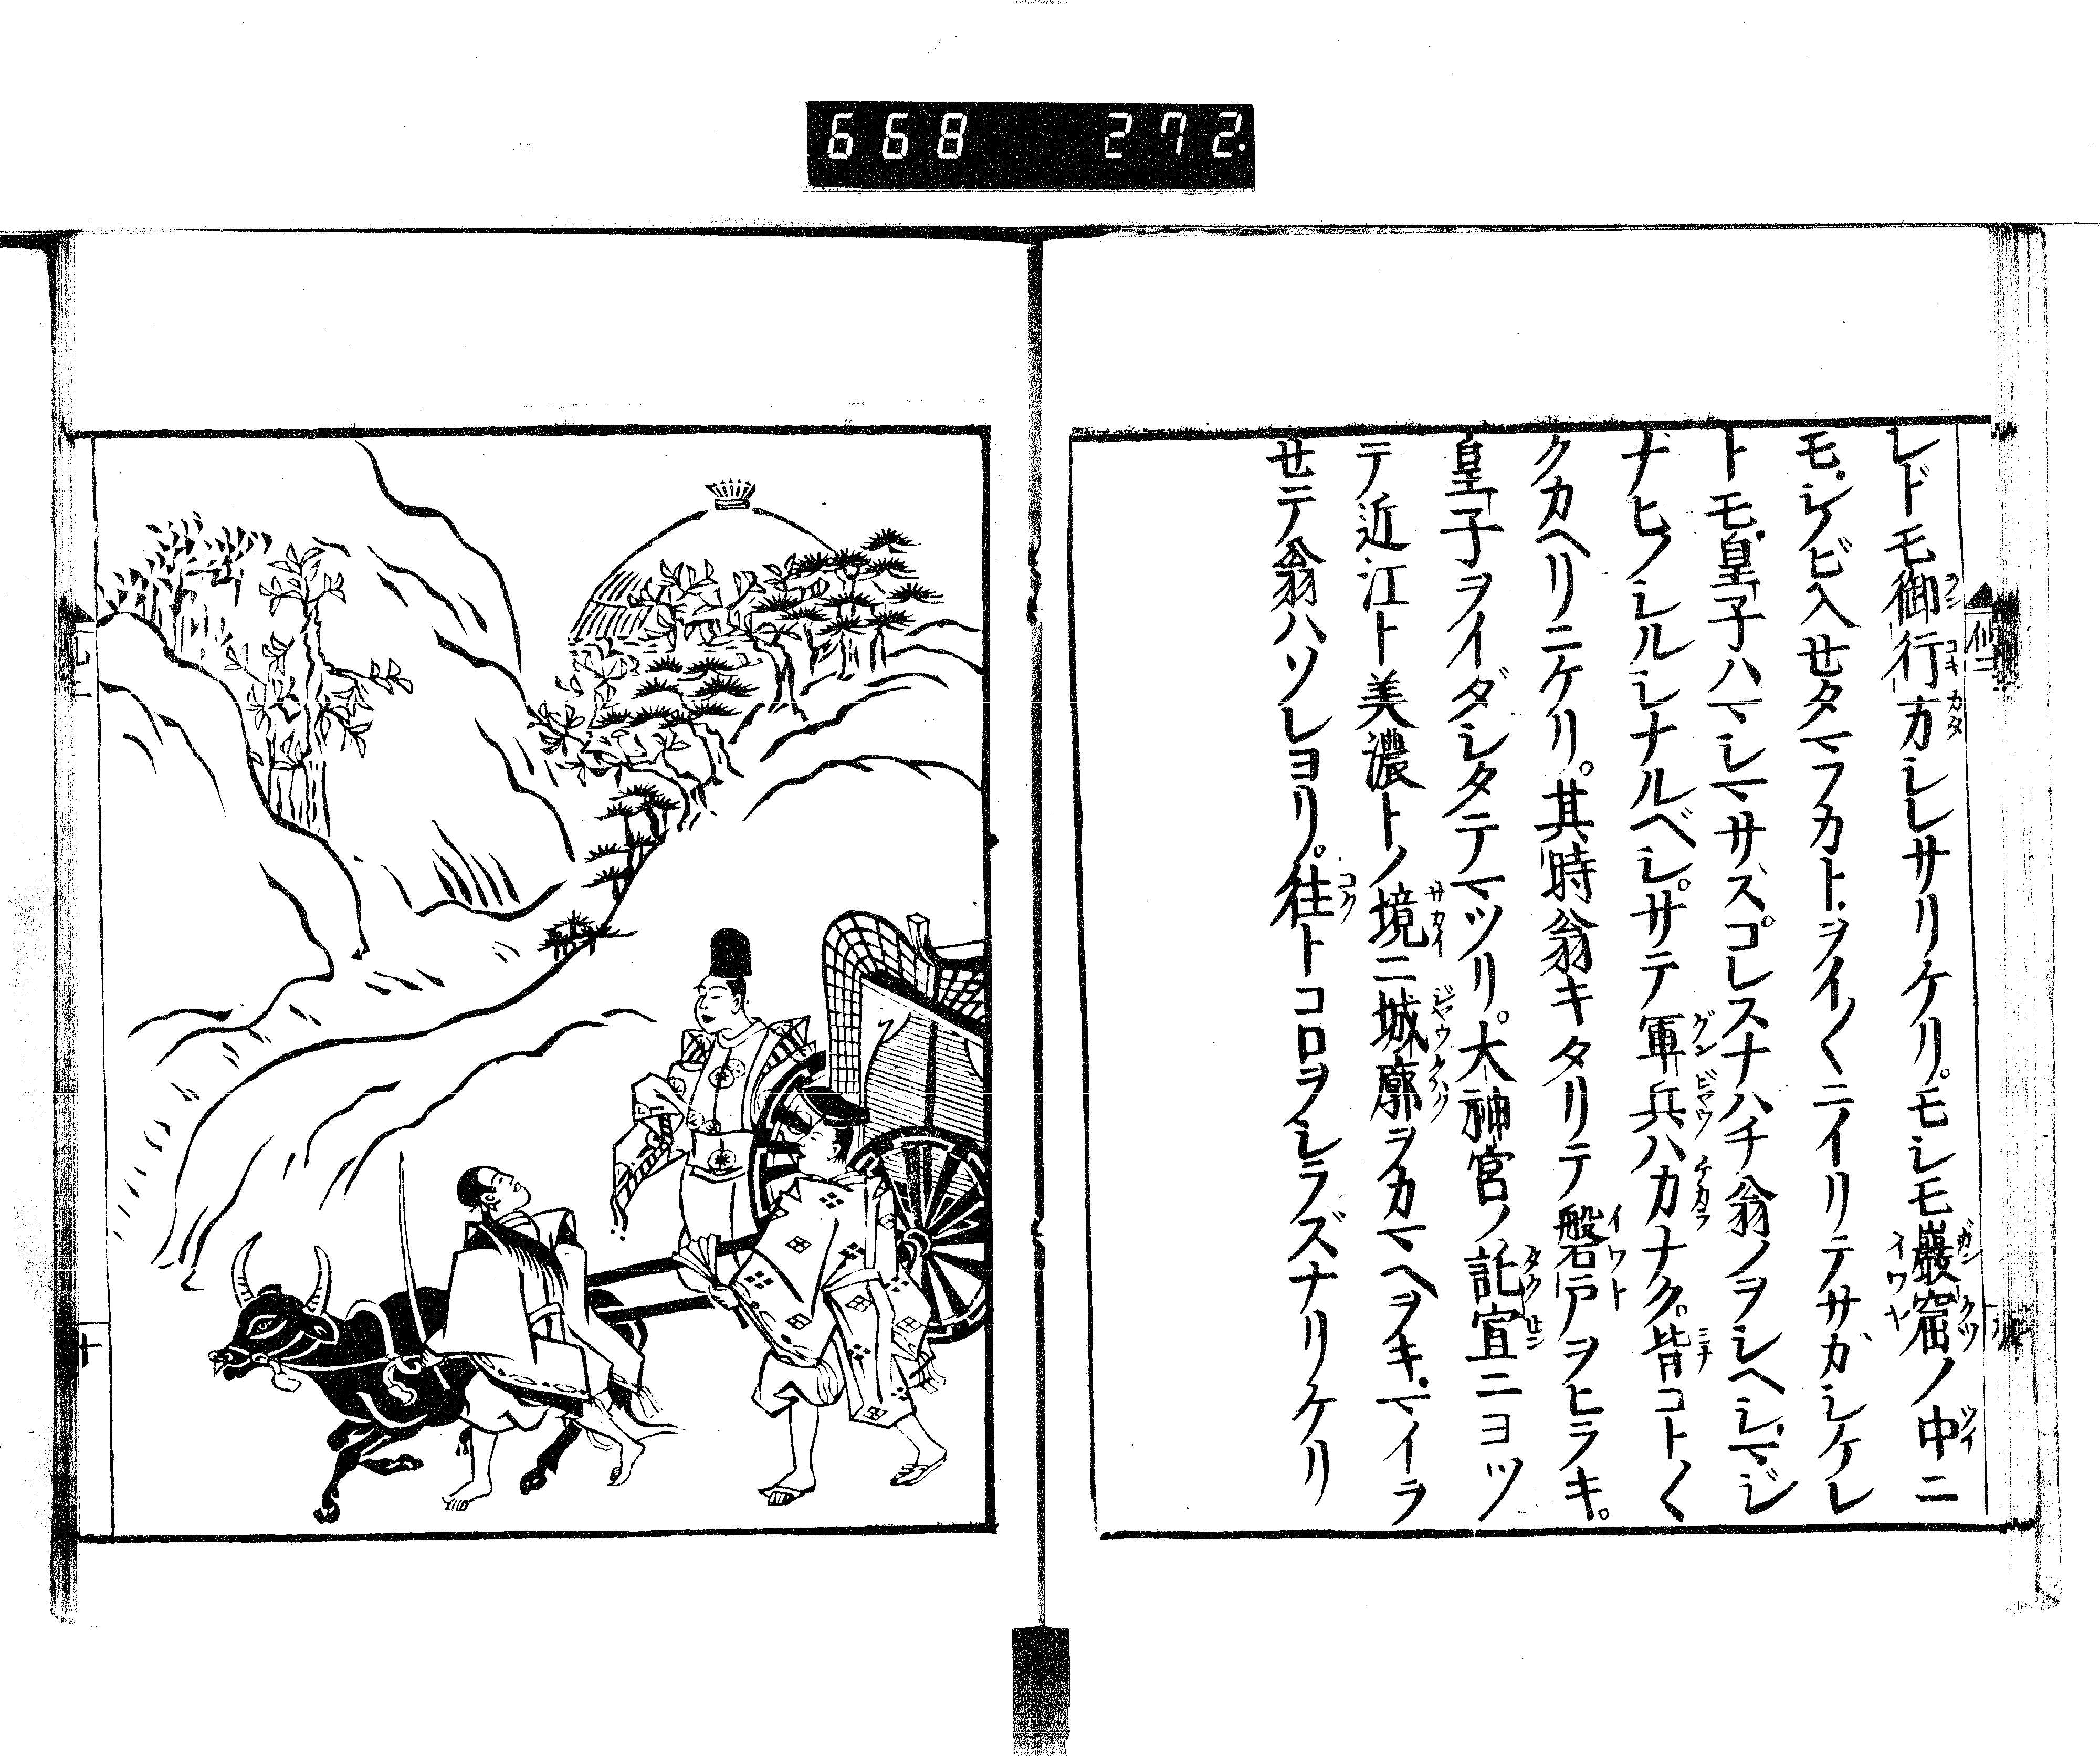 668 272
レドモ御行方シレサリケリ。モシモ巖窟ノ中ニ
モ。シノビ入セタマフカト。ヲイ〱ニイリテサガシケレ
トモ。皇子ハマシマサズ。コレスナハチ翁ノヲシヘシ。マジ
ナヒノシルシナルベシ。サテ軍兵ハカナク。皆コト〱
クカヘリニケリ。其時翁キタリテ磐戸ヲヒラキ。
皇子ヲイダシタテマツリ。大神宮ノ託宣ニヨツ
テ近江ト美濃トノ境ニ城廓ヲカマヘヲキ。マイラ
セテ翁ハソレヨリ。徃トコロヲシラズナリケリ
十